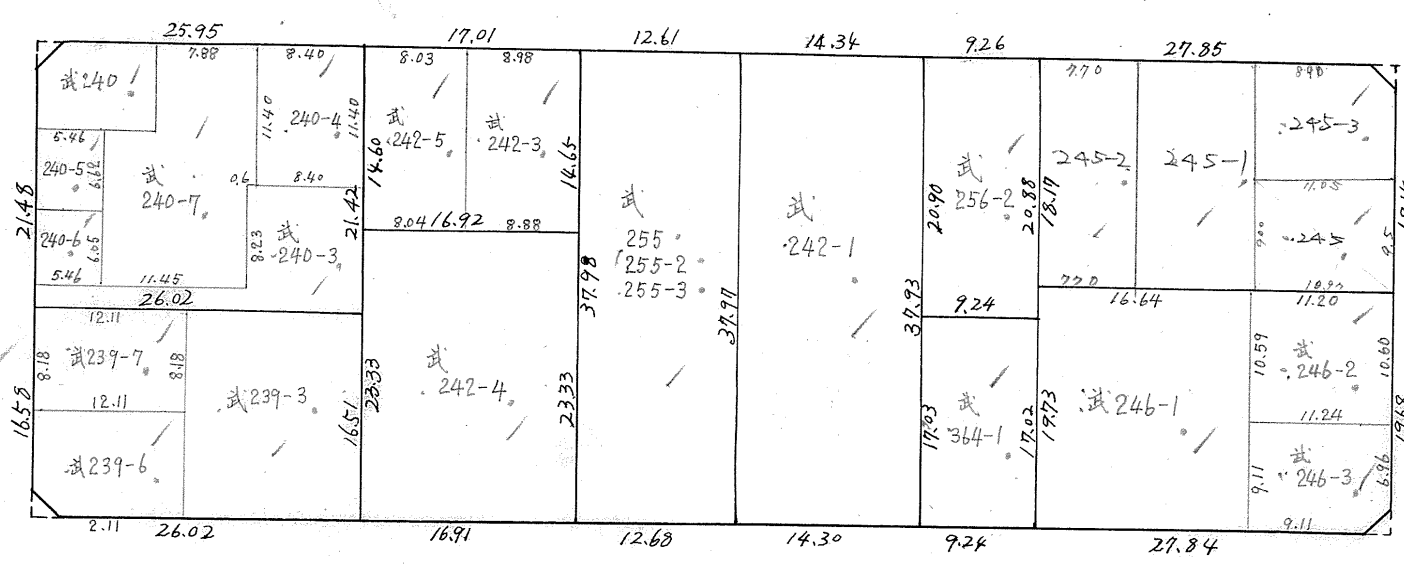 25.95
17.01
12.61
14.34
9.26
27.85
7.88
8.40
8.03
8.98
7.70
8.90
武240
11.40
240-4
11.40
武
242-5
武
242-3
245-3
5.46
240-5
6.62
武
240-7
0.6
8.40
14.60
14.65
武
256-2
245-2
245-1
11.05
21.48
240-6
6.05
8.23
武
240-3
21.42
8.04
16.92
8.88
武
255
255-2
255-3
武
242-1
20.90
20.88
18.17
9.00
245
9.5
5.46
11.45
26.02
37.98
37.97
37.93
9.24
7.70
16.64
11.20
12.11
8.18
武239-7
8.18
12.11
武239-3
16.51
23.33
武
242-4
23.33
10.59
武
246-2
10.60
11.24
16.58
武239-6
17.03
武
364-1
17.02
19.73
武246-1
9.11
武
246-3
6.96
19.68
9.11
2.11
26.02
16.91
12.68
14.30
9.24
27.84